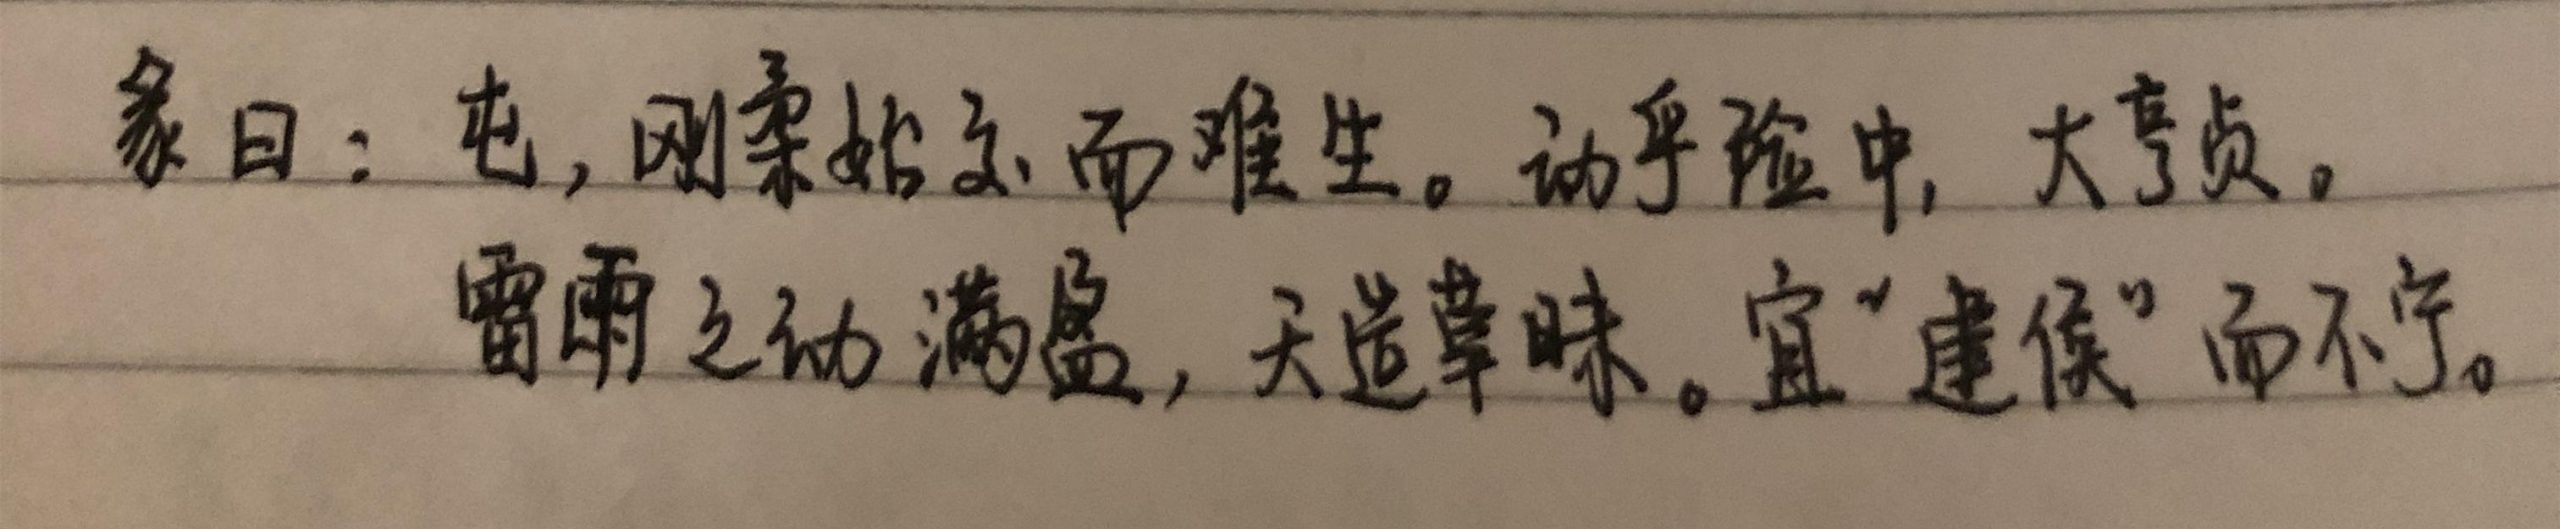 彖曰：屯，刚柔始交而难生。动乎险中，大亨贞。
雷雨之动满盈，天造草昧。宜“建侯”而不宁。